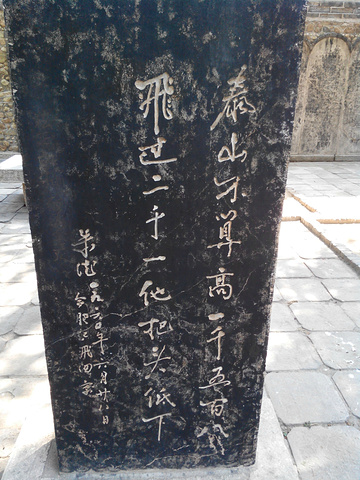 泰山不算高一千五百
飛过二千一他把头低下
朱德一九六〇年六月廿八日
合肥飛回京